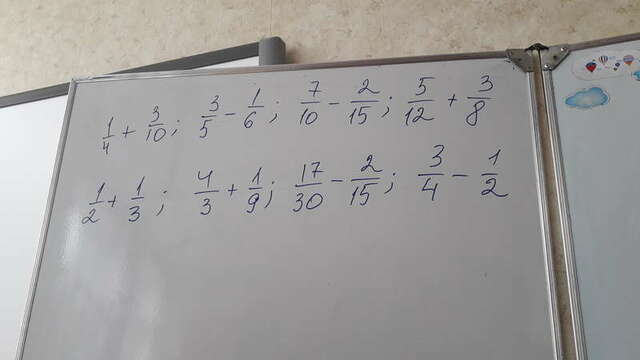 1/4 + 3/10; 3/5 - 1/6; 7/10 - 2/15; 5/12 + 3/8
1/2 + 1/3; 4/3 + 1/9; 17/30 - 2/15; 3/4 - 1/2